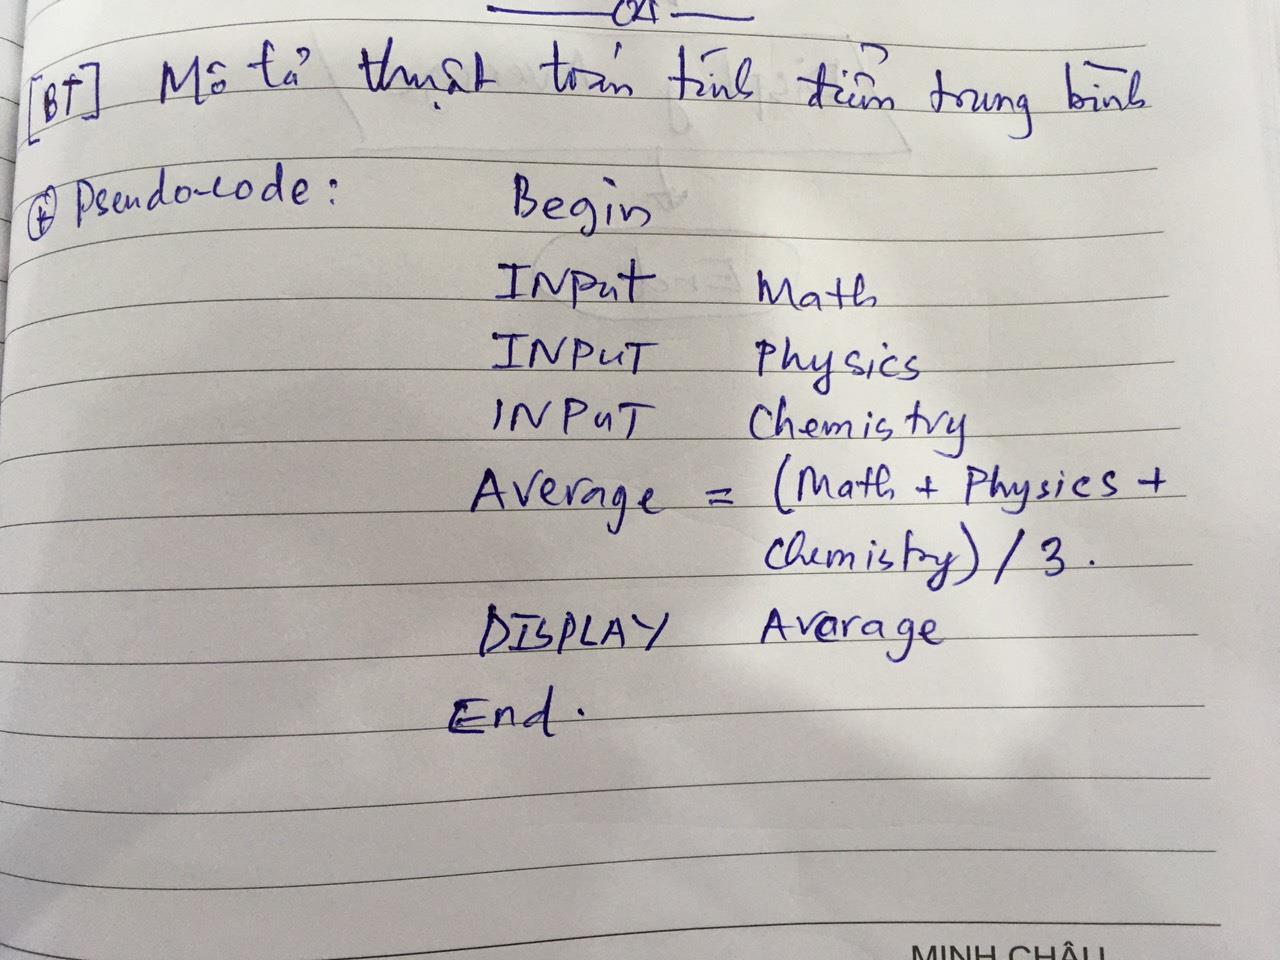 [BT] Mô tả thuật toán tính điểm trung bình
⊕ Pseudo-code: Begin
INPut Math
INPUT Physics
INPUT Chemistry
Average = (Math + Physics +
Chemistry) / 3.
DISPLAY Avarage
End.
MINH CHÂU